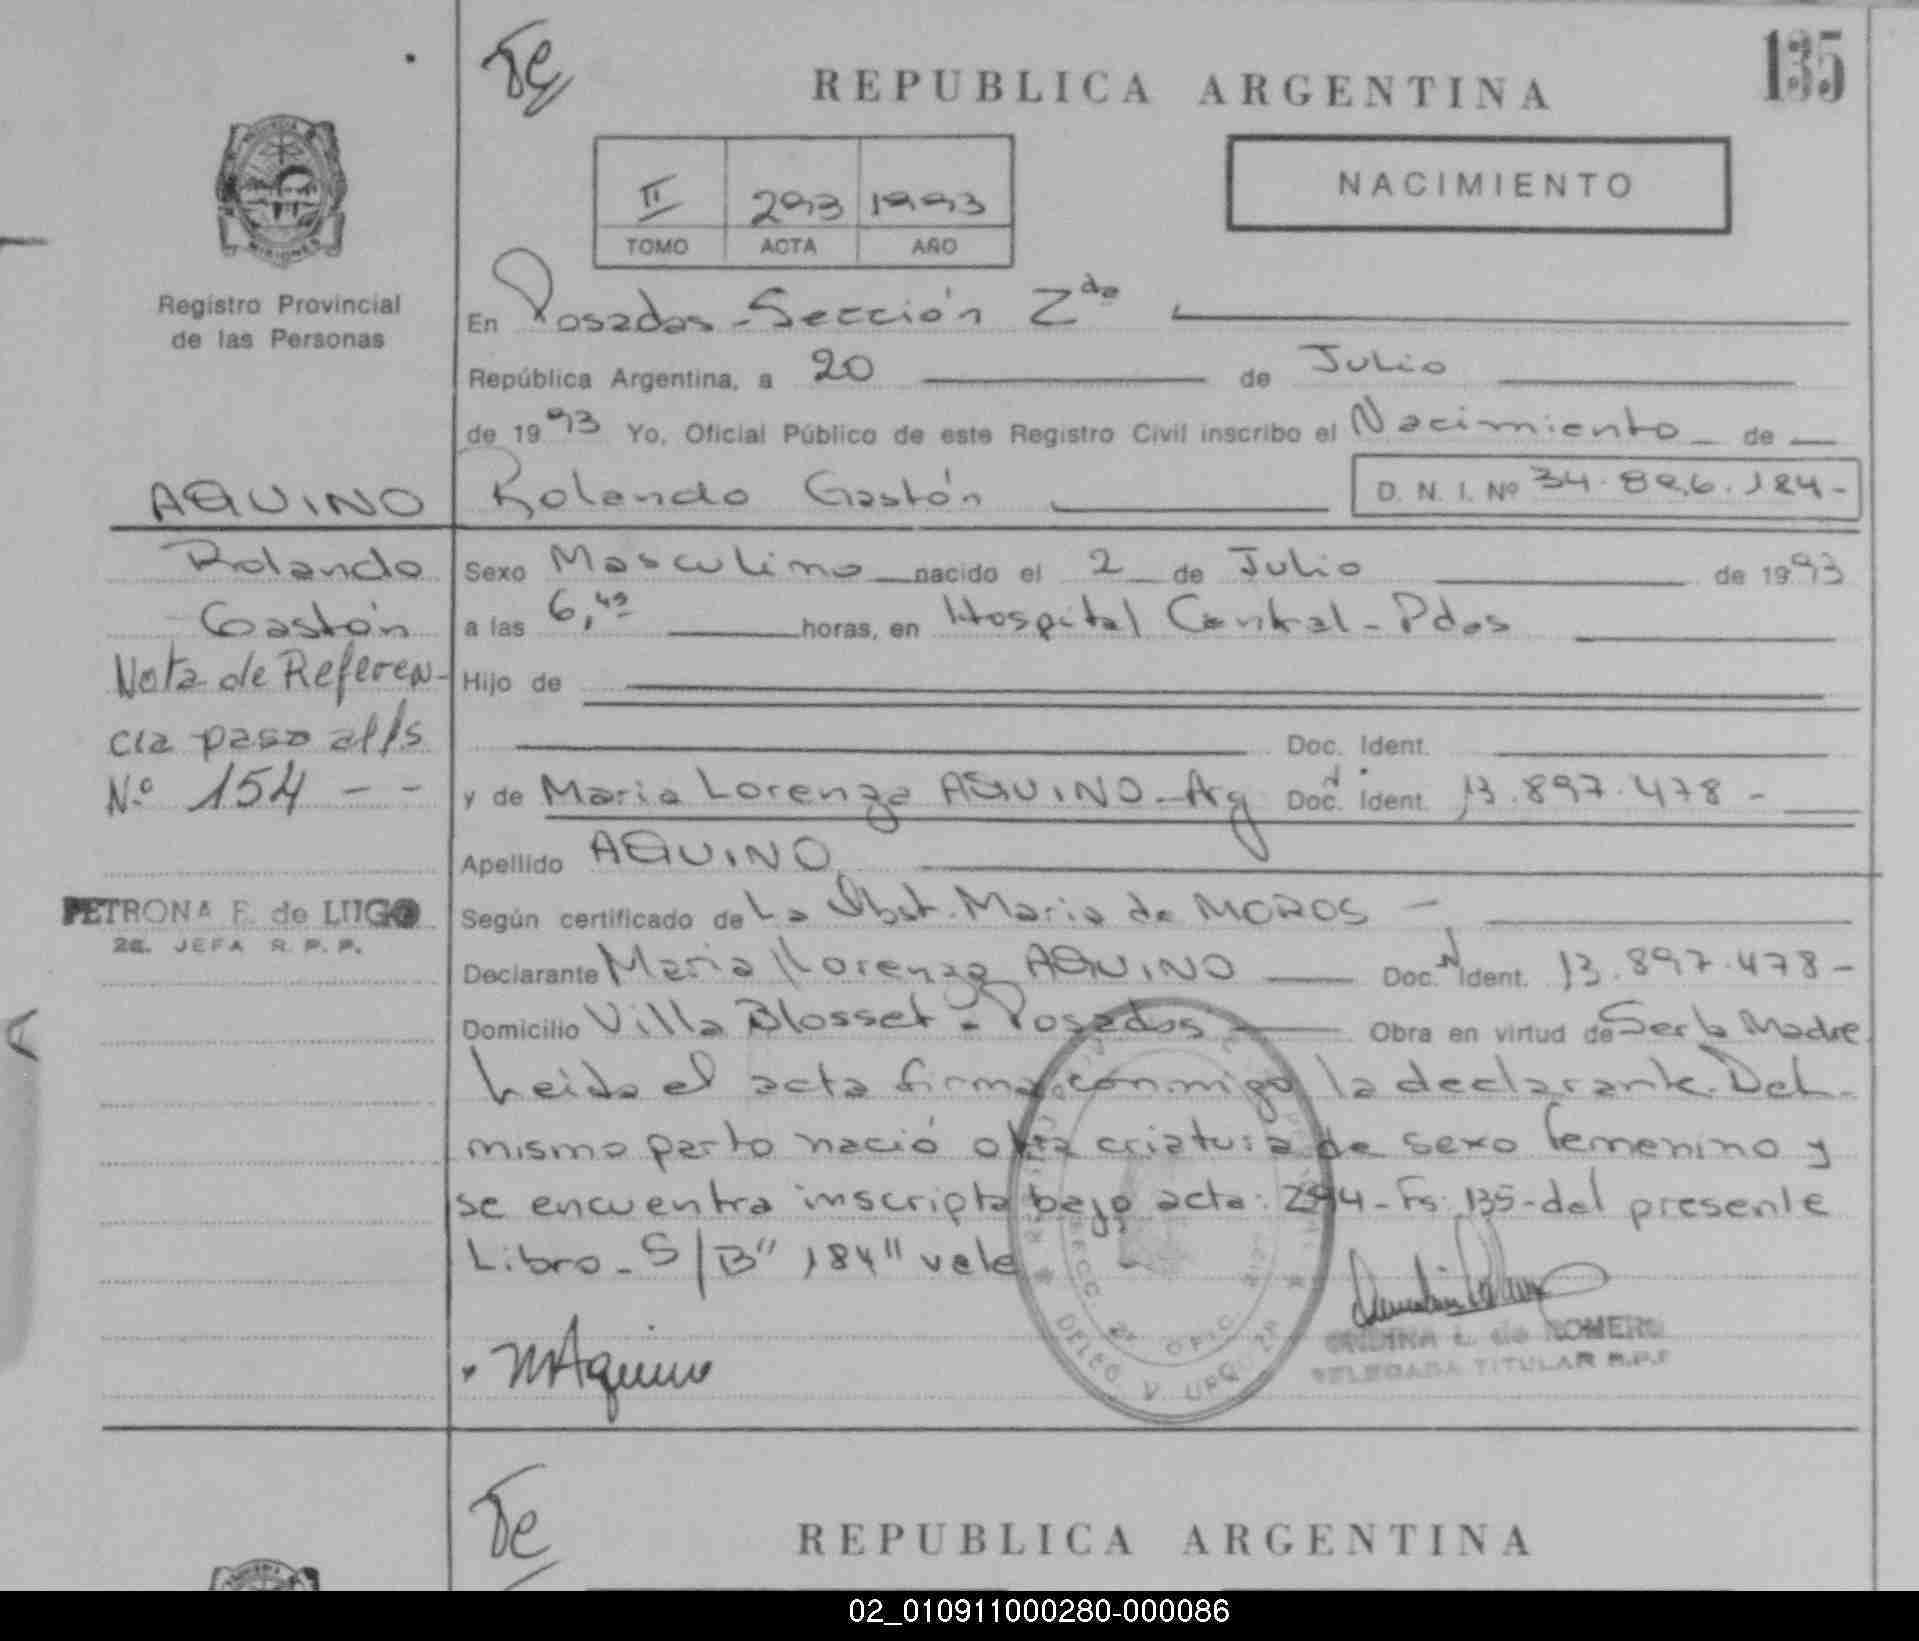 135
REPUBLICA ARGENTINA
NACIMIENTO
II 293 1993
TOMO ACTA AÑO
MISIONES
Registro Provincial
de las Personas
En Posadas - Sección 2da
República Argentina, a 20 de Julio
de 1993 Yo, Oficial Público de este Registro Civil inscribo el Nacimiento de
AQUINO Rolando Gastón D. N. I. Nº 34.896.184-
Rolando
Gastón
Nota de Referen-
cia paso al fs
Nº 154 - -
PETRONA F. de LUGO
2a. JEFA R. P. P.
Sexo Masculino nacido el 2 de Julio de 1993
a las 6,49 horas, en Hospital Central - Pdas
Hijo de
Doc. Ident.
y de Maria Lorenza AQUINO - Arg Doc. Ident. 13.897.478 -
Apellido AQUINO
Según certificado de La Obst. Maria de MOROS -
Declarante Maria Lorenza AQUINO Doc. Ident. 13.897.478 -
Domicilio Villa Blosset - Posadas Obra en virtud de Ser la Madre
Leida el acta firma conmigo la declarante. Del
mismo parto nació otra criatura de sexo femenino y
se encuentra inscripta bajo acta: 294 - Fs: 135 - del presente
Libro - S/B" 184" vale
MAquino
SECC. 2ª OFIC. 
DELEG. V. URQUIZA
ONDINA L. de ROMERO
DELEGADA TITULAR R.P.P
REPUBLICA ARGENTINA
02_010911000280-000086